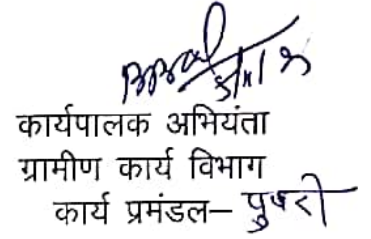 कार्यपालक अभियंता
ग्रामीण कार्य विभाग
कार्य प्रमंडल– पुपरी